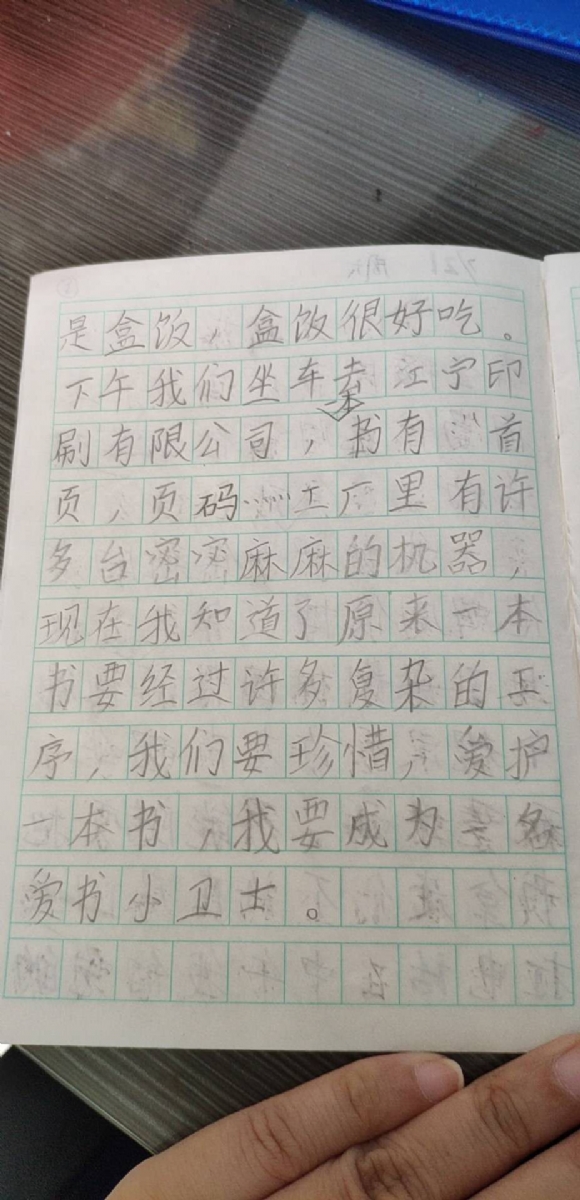 是盒饭，盒饭很好吃。
下午我们坐车去江宁印
刷有限公司，书有首
页，页码……工厂里有许
多台密密麻麻的机器，
现在我知道了原来一本
书要经过许多复杂的工
序，我们要珍惜，爱护
一本书，我要成为一名
爱书小卫士。